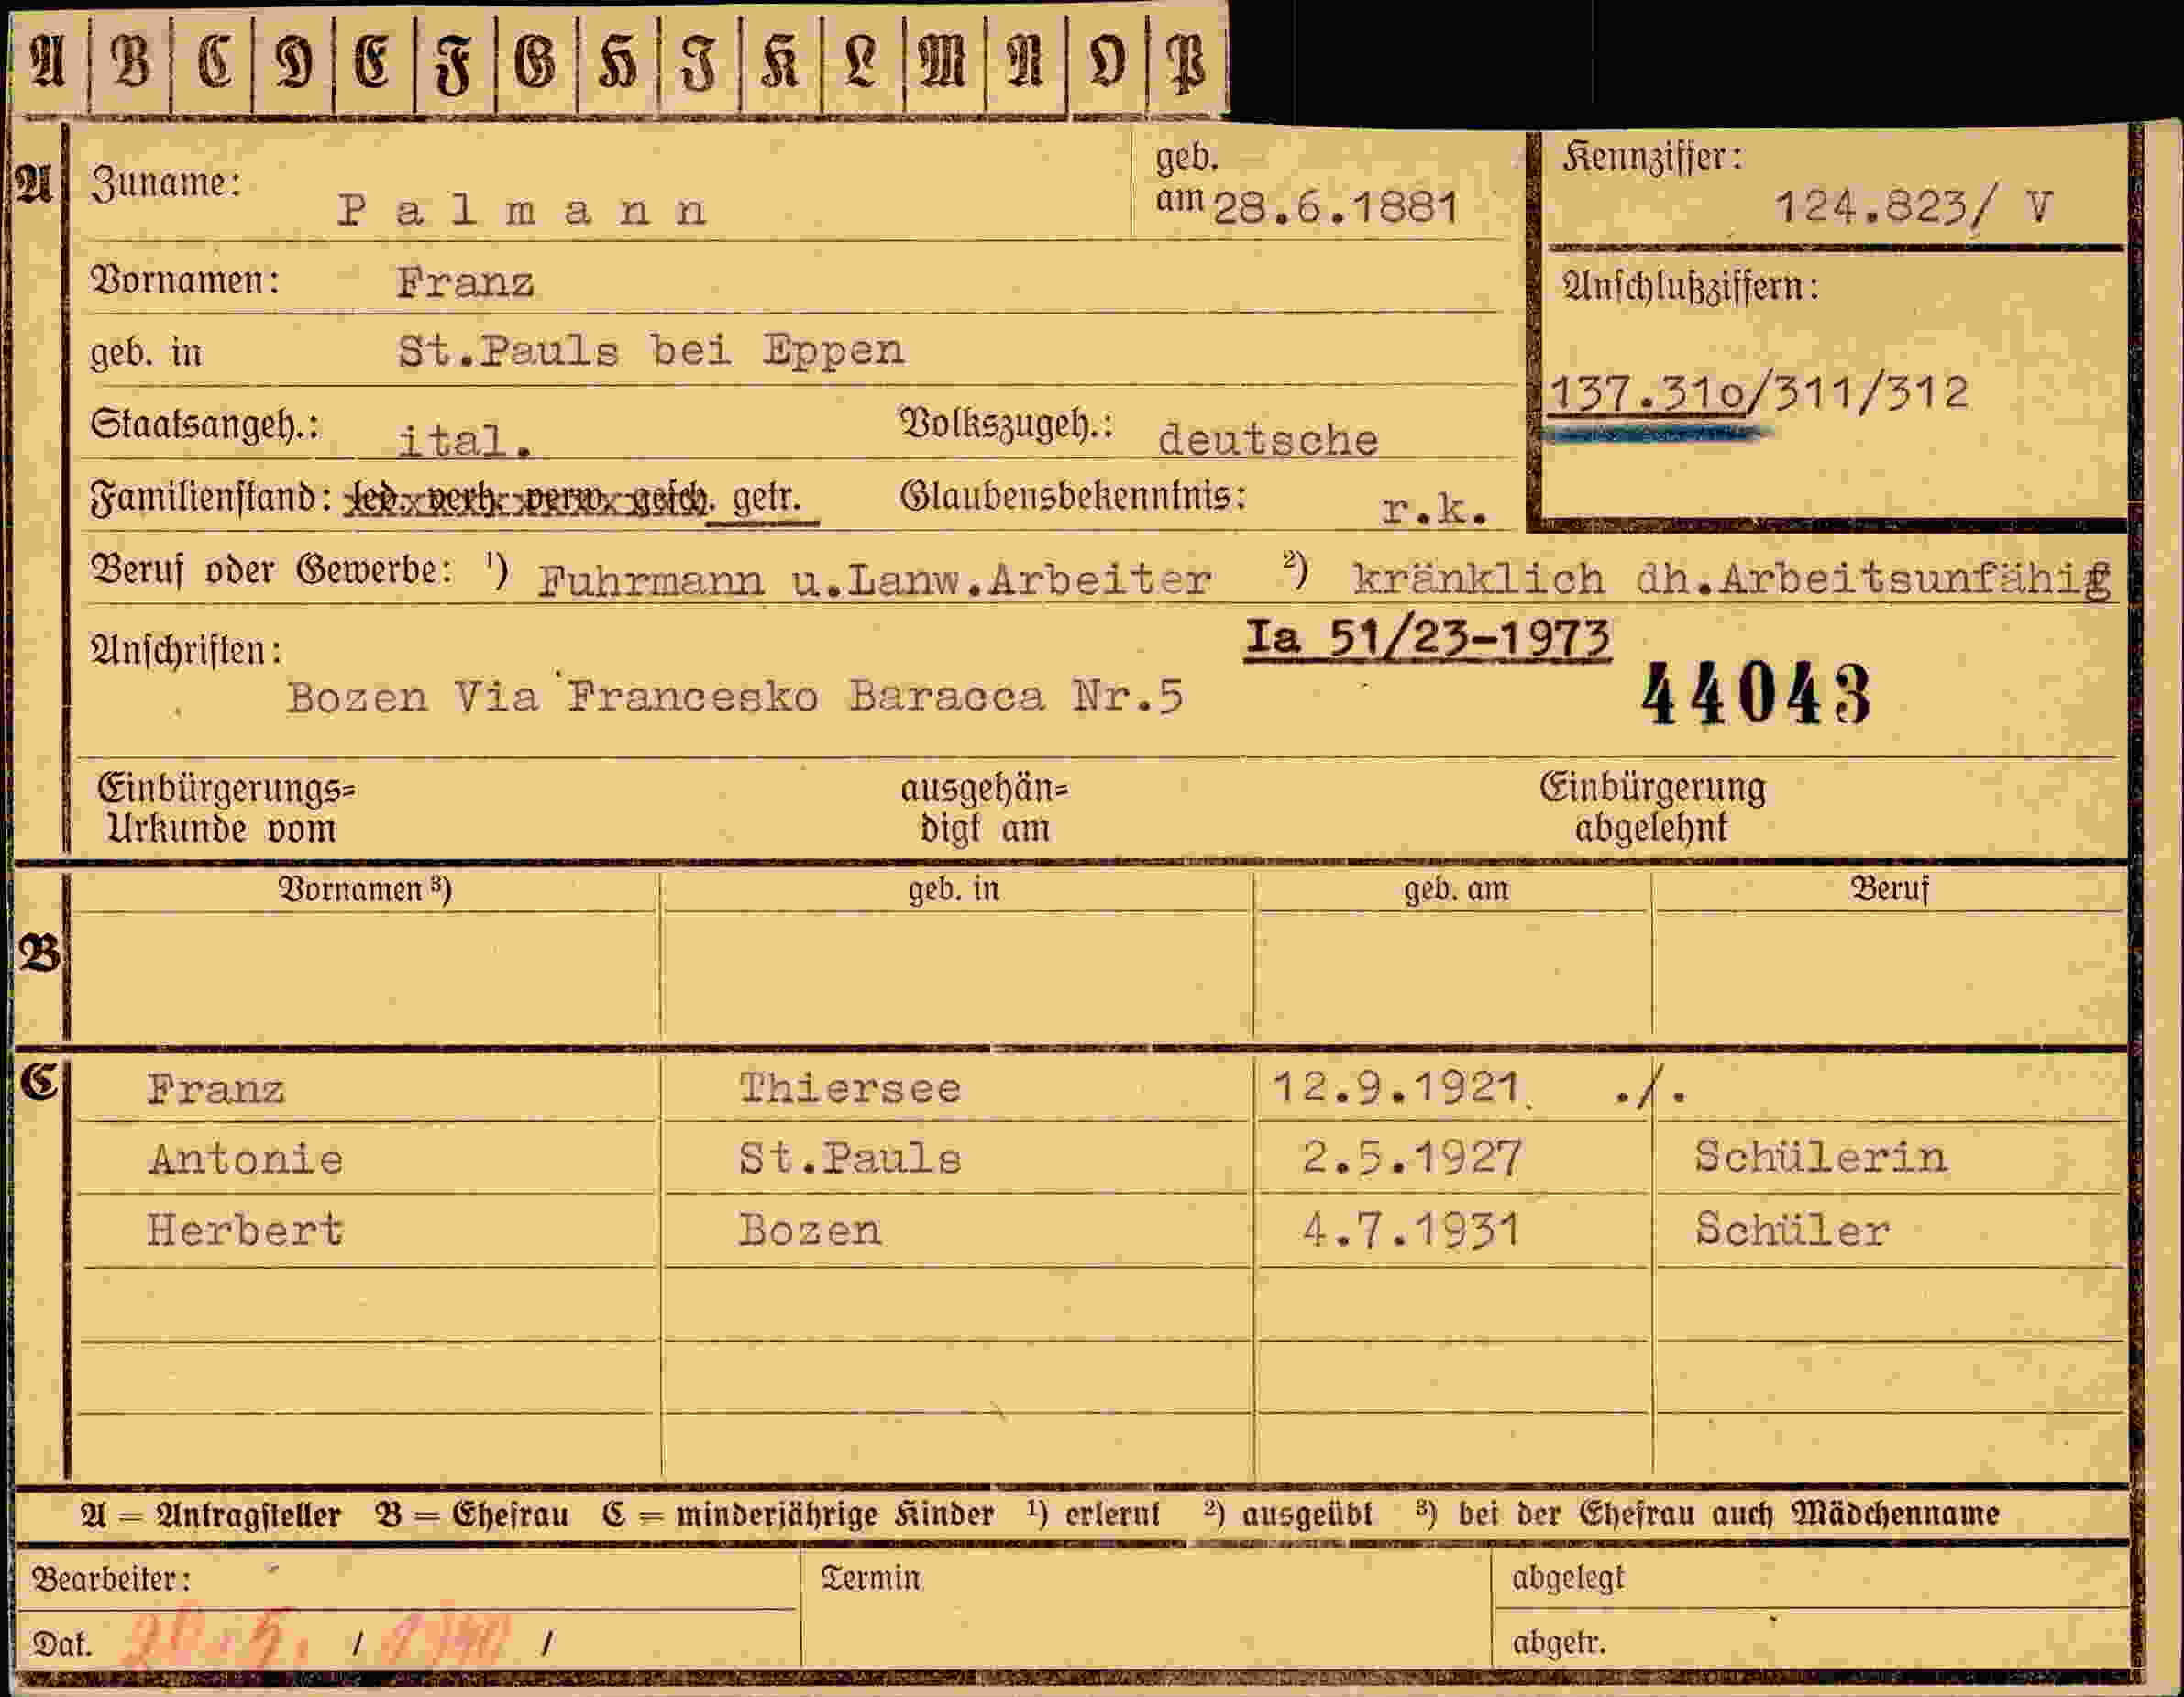 A B C D E F G H I K L M N O P
A Zuname: Palmann geb. am 28.6.1881 Kennziffer: 124.823/ V
Vornamen: Franz Anschlußziffern:
geb. in St.Pauls bei Eppen 137.31o/311/312
Staatsangeh.: ital. Volkszugeh.: deutsche
Familienstand: led. verh. verw. gesch. getr. Glaubensbekenntnis: r.k.
Beruf oder Gewerbe: ¹) Fuhrmann u.Lanw.Arbeiter ²) kränklich dh.Arbeitsunfähig
Anschriften: Ia 51/23-1973
Bozen Via Francesko Baracca Nr.5 44043
Einbürgerungs= ausgehän= Einbürgerung
Urkunde vom digt am abgelehnt
Vornamen ³) geb. in geb. am Beruf
B
C Franz Thiersee 12.9.1921 ./.
Antonie St.Pauls 2.5.1927 Schülerin
Herbert Bozen 4.7.1931 Schüler
A = Antragsteller B = Ehefrau C = minderjährige Kinder ¹) erlernt ²) ausgeübt ³) bei der Ehefrau auch Mädchenname
Bearbeiter: Termin abgelegt
Dat. / / abgetr.